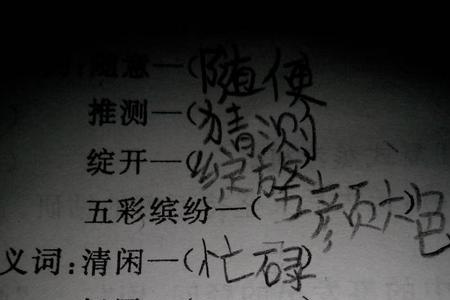 词:随意—(随便
推测—(猜测
绽开—(绽放)
五彩缤纷—(五颜六色)
义词:清闲—(忙碌)